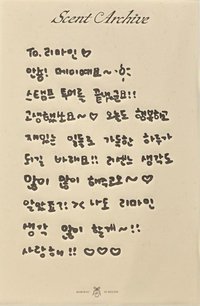 Scent Archive
To. 리마인 ♡
안농! 메이예요~
스탬프 투어를 끝냈군요!!
고생했어요~♡ 오늘도 행복하고
재밌는 일들로 가득한 하루가
되길 바래요!! 리센느 생각도
많이 많이 해주구요~♡
알았죠?! >< 나도 리마인
생각 많이 할게~!!
사랑해!! ♡♡♡